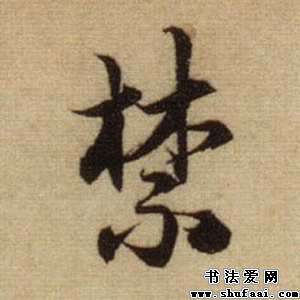 禁
书法爱网
www.shufaai.com